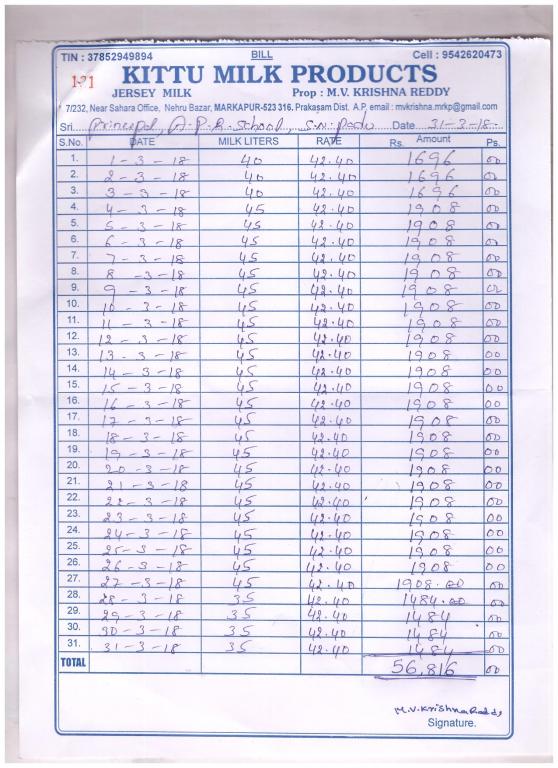 TIN : 37852949894 BILL Cell : 9542620473
191 KITTU MILK PRODUCTS
JERSEY MILK Prop : M.V. KRISHNA REDDY
7/232, Near Sahara Office, Nehru Bazar, MARKAPUR-523 316. Prakasam Dist. A.P. email : mvkrishna.mrkp@gmail.com
Sri. Principal, A.P.R. School, S.N. Padu Date 31-3-18-
S.No. DATE MILK LITERS RATE Rs. Amount Ps.
1. 1-3-18 40 42.40 1696 00
2. 2-3-18 40 42.40 1696 00
3. 3-3-18 40 42.40 1696 00
4. 4-3-18 45 42.40 1908 00
5. 5-3-18 45 42.40 1908 00
6. 6-3-18 45 42.40 1908 00
7. 7-3-18 45 42.40 1908 00
8. 8-3-18 45 42.40 1908 00
9. 9-3-18 45 42.40 1908 00
10. 10-3-18 45 42.40 1908 00
11. 11-3-18 45 42.40 1908 00
12. 12-3-18 45 42.40 1908 00
13. 13-3-18 45 42.40 1908 00
14. 14-3-18 45 42.40 1908 00
15. 15-3-18 45 42.40 1908 00
16. 16-3-18 45 42.40 1908 00
17. 17-3-18 45 42.40 1908 00
18. 18-3-18 45 42.40 1908 00
19. 19-3-18 45 42.40 1908 00
20. 20-3-18 45 42.40 1908 00
21. 21-3-18 45 42.40 1908 00
22. 22-3-18 45 42.40 1908 00
23. 23-3-18 45 42.40 1908 00
24. 24-3-18 45 42.40 1908 00
25. 25-3-18 45 42.40 1908 00
26. 26-3-18 45 42.40 1908 00
27. 27-3-18 45 42.40 1908.00 00
28. 28-3-18 35 42.40 1484.00 00
29. 29-3-18 35 42.40 1484 00
30. 30-3-18 35 42.40 1484 00
31. 31-3-18 35 42.40 1484 00
TOTAL 56,816 00
M.V. Krishna Reddy
Signature.